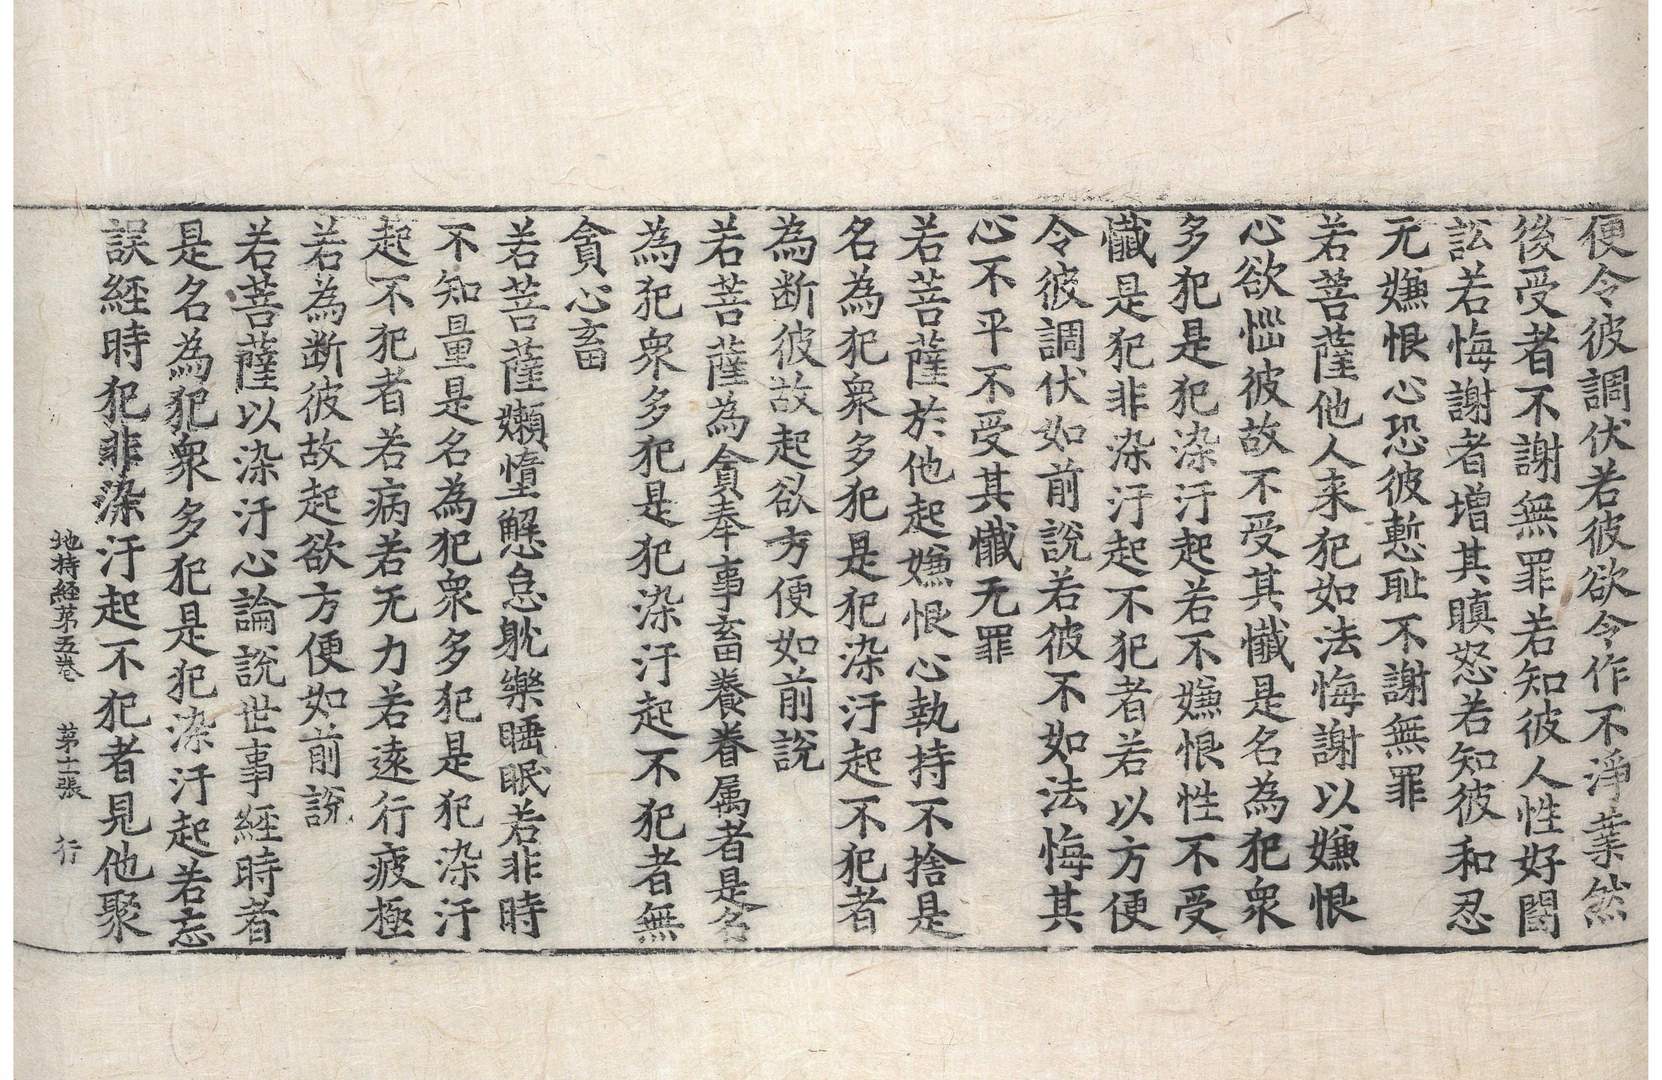 便令彼調伏若彼欲令作不淨業然
後受者不謝無罪若知彼人性好鬪
訟若悔謝者增其瞋怒若知彼和忍
无嫌恨心恐彼慙耻不謝無罪
若菩薩他人来犯如法悔謝以嫌恨
心欲惱彼故不受其懺是名為犯衆
多犯是犯染汙起若不嫌恨性不受
懺是犯非染汙起不犯者若以方便
令彼調伏如前說若彼不如法悔其
心不平不受其懺无罪
若菩薩於他起嫌恨心執持不捨是
名為犯衆多犯是犯染汙起不犯者
為断彼故起欲方便如前說
若菩薩為貪奉事畜養眷属者是名
為犯衆多犯是犯染汙起不犯者無
貪心畜
若菩薩嬾惰懈怠躭樂睡眠若非時
不知量是名為犯衆多犯是犯染汙
起不犯者若病若无力若遠行疲極
若為断彼故起欲方便如前說
若菩薩以染汙心論說世事經時者
是名為犯衆多犯是犯染汙起若忘
誤經時犯非染汙起不犯者見他聚
地持經第五卷 第十二張 行